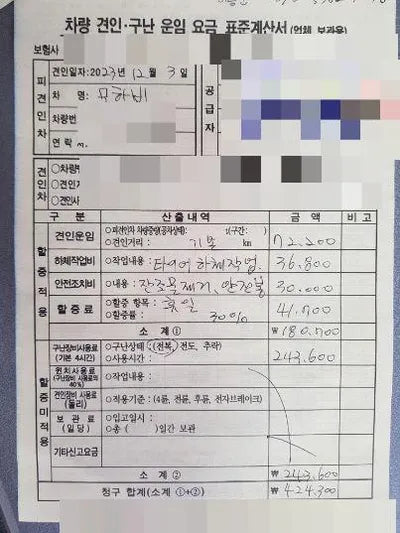 차량 견인·구난 운임 요금 표준계산서(업체 보관용)
보험사
피견인차
견인일자: 2023년 12월 3일
차 명: 모하비
차량번
연 락
공급자
견인차
○차량
○견인
○견인사
구 분 산출내역 금 액 비 고
할증적용
견인운임 ○피견인차 차량중량(공차상태): (구간: )
○견인거리 : 기본 km 72,200
하체작업비 ○작업내용: 타이어 하체작업. 36,800
안전조치비 ○내용: 잔존물제거, 안전봉 30,000
할증료 ○할증 항목: 휴일
○할증률: 30% 41,700
소 계① ₩180,700
할증미적용
구난장비사용료 (기본 4시간) ○구난상태: (전복, 전도, 추락)
○사용시간: 243,600
윈치사용료 (구난장비 사용료의 40%) ○작업내용:
견인장비사용료 (돌리) ○적용기준: (4륜, 전륜, 후륜, 전자브레이크)
보 관 료 (일당) ○입고일시:
○총 ( )일간 보관
기타신고요금
소 계② ₩243,600
청구 합계(소계 ①+②) ₩424,300